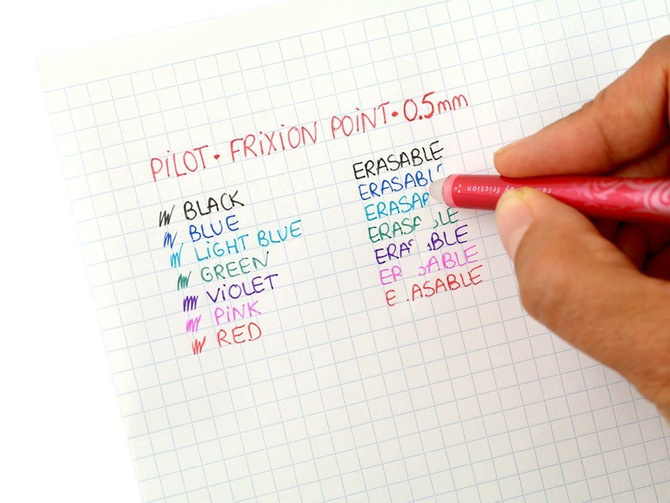 PILOT · FRIXION POINT · 0.5mm
BLACK
BLUE
LIGHT BLUE
GREEN
VIOLET
PINK
RED
ERASABLE
ERASABL
ERASAB
ERASA LE
ERA BLE
ER ABLE
E ASABLE
friction